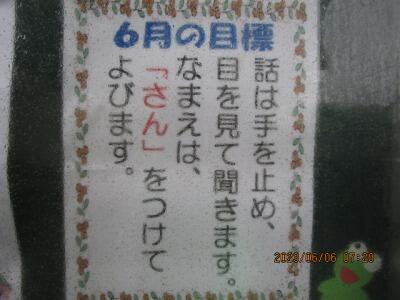 6月の目標
話は手を止め、
目を見て聞きます。
なまえは、
「さん」をつけて
よびます。
2023/06/06 07:20